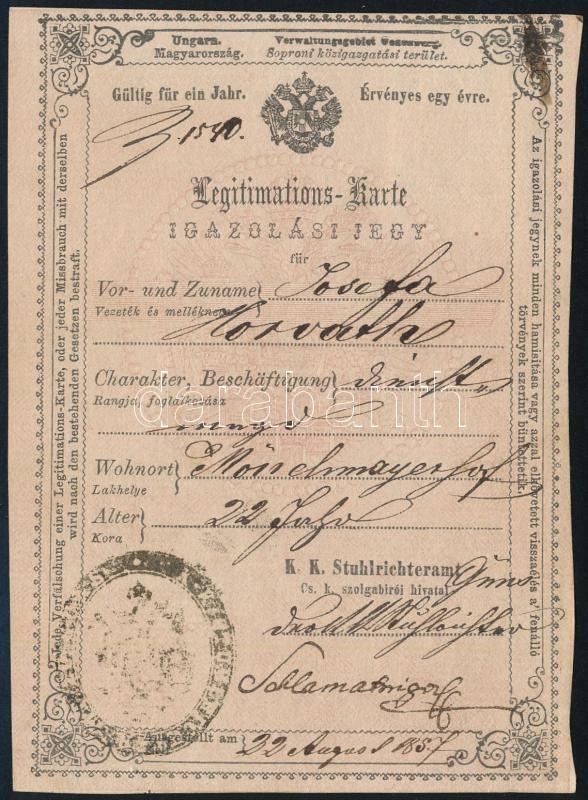 Ungarn. Verwaltungsgebiet
Magyarország. Soproni közigazgatási terület.
Gültig für ein Jahr. Érvényes egy évre.
1540.
Legitimations-Karte
IGAZOLÁSI JEGY
für
Vor- und Zuname} Josefa
Vezeték és mellékneve
Horvath
Charakter, Beschäftigung} dienst
Rangja, foglalkozása
magd
Wohnort}
Lakhelye
Alter} 22 Jahr
Kora
K. K. Stuhlrichteramt Güns
Cs. k. szolgabirói hivatal
Ausgestellt am 22 August 1857
Kelt
Jede Verfälschung einer Legitimations-Karte, oder jeder Missbrauch mit derselben
wird nach den bestehenden Gesetzen bestraft.
Az igazolási jegynek minden hamisitása vagy azzal elkövetett visszaélés a' fenálló
törvények szerint büntettetik.
darabanth